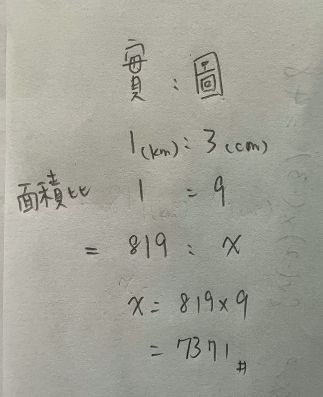 實:圖
1(km):3(cm)
面積比 1 = 9
= 819 : x
x = 819×9
= 7371#